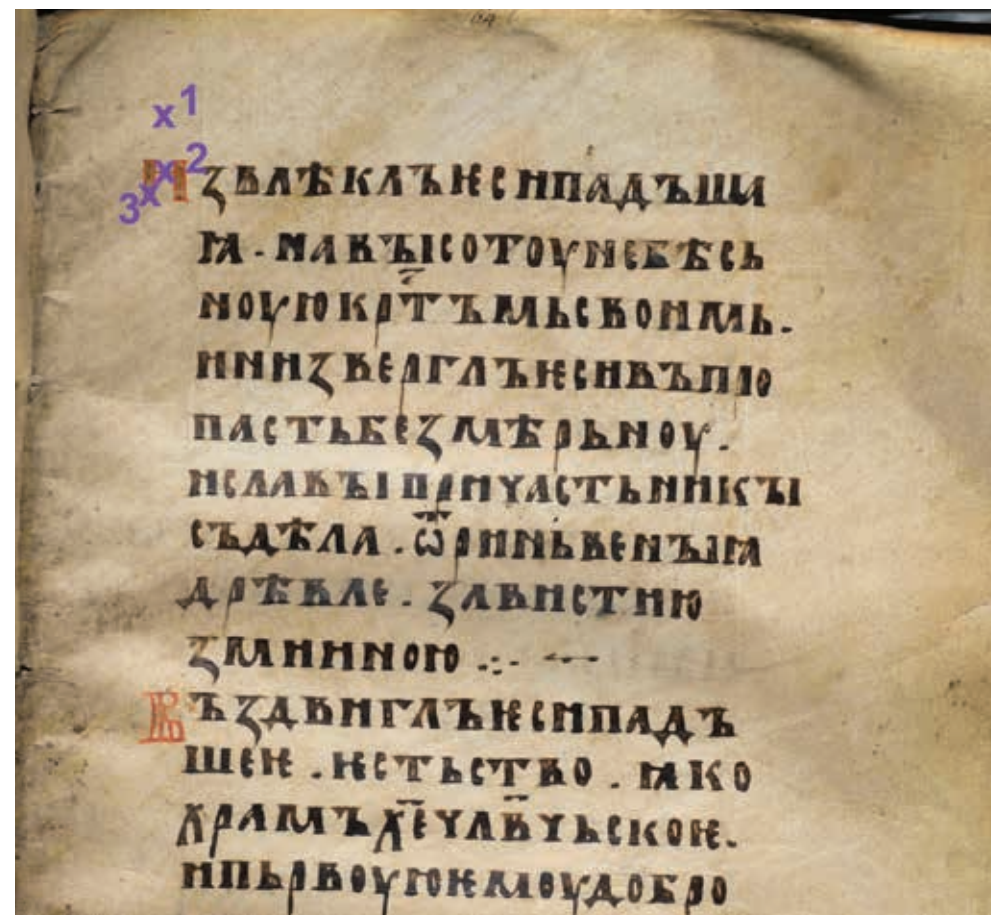 х 1
х 2
3 х
Извлѣклъѥсипадъша
ꙗ. навꙑсотоунебѣсь
ноуюкр҃тъмьсвоимь.
инизверглъѥсивъпро
пастьбезмѣрьноу.
иславꙑпричастьникꙑ
съдѣла. ѿриновенꙑꙗ
дрѣвле. завистию
змииною .:. ~
Въздвиглъѥсипадъ
шеѥ .ѥстьство. ꙗко
храмъх҃ечлв҃чьскоѥ.
ипьрвоуюѥмоудобро